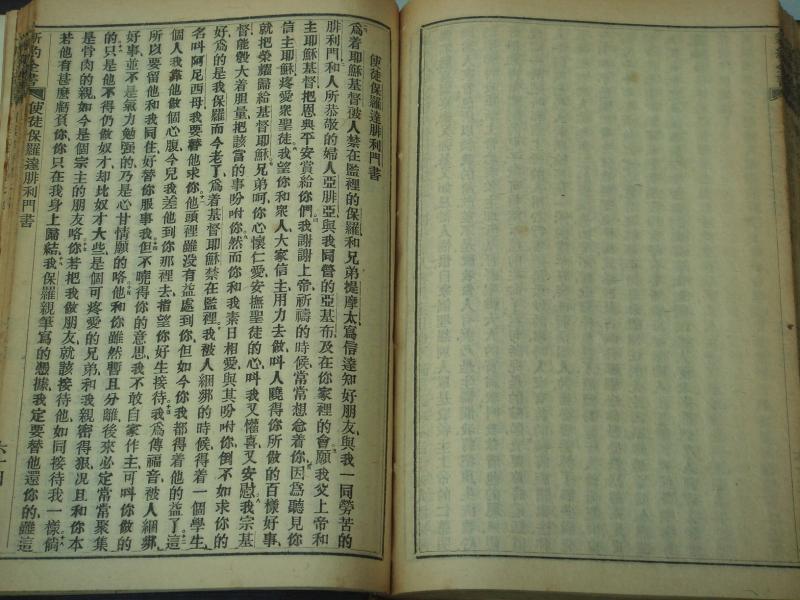 使徒保羅達腓利門書
爲着耶穌基督被人禁在監裡的保羅和兄弟提摩太寫信達知好朋友與我一同勞苦的
腓利門和人所恭敬的婦人亞腓亞與我同營的亞基布及在你家裡的會願我父上帝和
主耶穌基督把恩典平安賞給你們我謝謝上帝祈禱的時候常常想念着你因爲聽見你
信主耶穌疼愛衆聖徒我望你和衆人大家信主用力去做叫人曉得你所做的百樣好事
就把榮耀歸給基督耶穌兄弟呵你心懷仁愛安撫聖徒的心叫我又懽喜又安慰我宗基
督能彀大着胆量把該當的事吩咐你然而你和我素日相愛與其吩咐你倒不如求你的
好爲的是我保羅而今老了爲着基督耶穌禁在監裡我被人綑綁的時候得着一個學生
名叫阿尼西母我要替他求你他頭裡雖沒有益處到你但如今你我都得着他的益了這
個人我靠他做個心腹今兒我差他到你那裡去指望你好生接待我爲傳福音被人綑綁
所以要留他和我同住好替你服事我但不曉得你的意思我不敢自家作主可叫你做的
好事並不是氣力勉強的乃是心甘情願的咯他和你雖然暫且分離後來必定常常聚集
的只是他不得仍做奴才却比奴才大些是個可疼愛的兄弟和我親密得狠况且和你本
是骨肉的親如今是個宗主的朋友咯你若把我做朋友就該接待他如同接待我一樣倘
若他有甚麽虧負你你只在我身上歸結我保羅親筆寫的憑據我定要替他還你的雖這
新約全書 使徒保羅達腓利門書